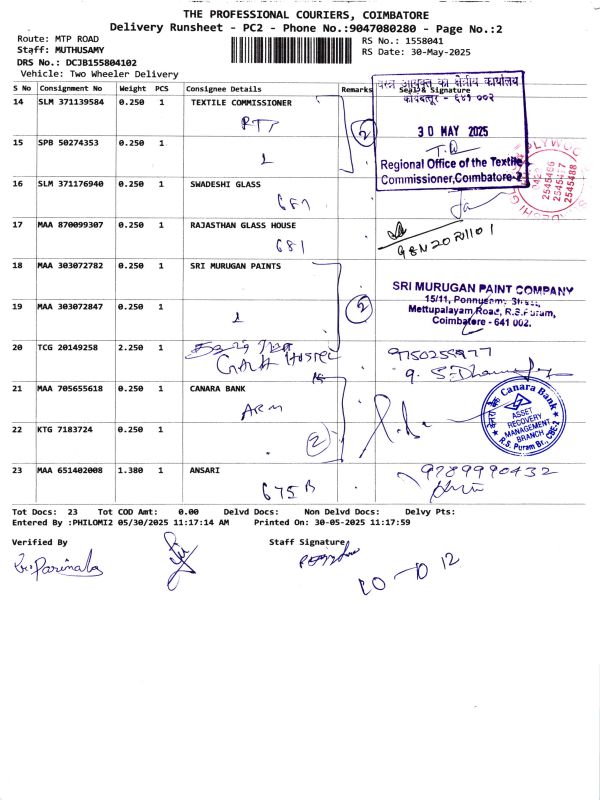 THE PROFESSIONAL COURIERS, COIMBATORE
Delivery Runsheet - PC2 - Phone No.:9047080280 - Page No.:2
Route: MTP ROAD
RS No.: 1558041
Staff: MUTHUSAMY
RS Date: 30-May-2025
DRS No.: DCJB155804102
Vehicle: Two Wheeler Delivery
S No Consignment No Weight PCS Consignee Details Remarks Seal& Signature
14 SLM 371139584 0.250 1 TEXTILE COMMISSIONER
2
क्षेत्रीय कार्यालय
कोयम्बतूर - ६४१ ००२
30 MAY 2025
Regional Office of the Textile
Commissioner, Coimbatore-2
15 SPB 50274353 0.250 1
2545466
2545477
2545488
16 SLM 371176940 0.250 1 SWADESHI GLASS
17 MAA 870099307 0.250 1 RAJASTHAN GLASS HOUSE
681
18 MAA 303072782 0.250 1 SRI MURUGAN PAINTS
2
SRI MURUGAN PAINT COMPANY
15/11, Ponnusamy Street,
Mettupalayam Road, R.S.Puram,
Coimbatore - 641 002.
19 MAA 303072847 0.250 1
20 TCG 20149258 2.250 1
9750255977
21 MAA 705655618 0.250 1 CANARA BANK
ARM
Canara Bank
ASSET
RECOVERY
MANAGEMENT
BRANCH
R.S. Puram Br., CBE-2
22 KTG 7183724 0.250 1
2
23 MAA 651402008 1.380 1 ANSARI
675 B
9789990432
Tot Docs: 23 Tot COD Amt: 0.00 Delvd Docs: Non Delvd Docs: Delvy Pts:
Entered By :PHILOMI2 05/30/2025 11:17:14 AM Printed On: 30-05-2025 11:17:59
Verified By
Staff Signature